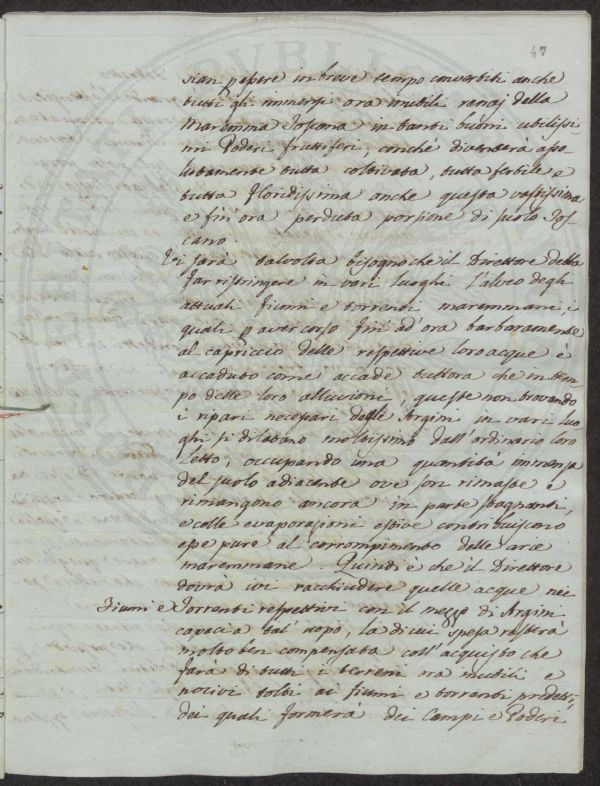 47
sian p essere in breve tempo convertiti anche
tutti gli immensi ora inutili renaj della
Maremma Toscana in tanti buoni utilissi
mi Poderi fruttiferi; cosichè diventerà asso
lutamente tutta coltivata, tutta fertile e
tutta floridissima anche questa vastissima
e fin' ora perduta porzione di suolo Tos-
cano.
Vi sarà talvolta bisogno che il Direttore debba
far ristringere in vari luoghi l'alveo degli
attuali fiumi e torrenti maremmani, i
quali p aver corso fin ad' ora barbaramente
al capriccio delle respettive loro acque è
accaduto come accade tuttora che in tem
po delle loro alluvioni, queste non trovando
i ripari necessari degli Argini in vari luo
ghi si dilatano moltissimo dall' ordinario loro
Letto, occupando una quantità immensa
del suolo adiacente ove son rimaste e
rimangono ancora in parte stagnanti,
e colle evaporazioni estive contribuiscono
esse pure al corrompimento delle arie
maremmane. Quindi è che il Direttore
dovrà ivi racchiudere quelle acque nei
Fiumi e Torrenti respettivi con il mezzo di Argini
capaci a tal' uopo, la di cui spesa resterà
molto ben compensata coll' acquisto che
farà di tutti i terreni ora inutili e
nocivi tolti ai fiumi e torrenti predetti,
dei quali formerà dei Campi e Poderi